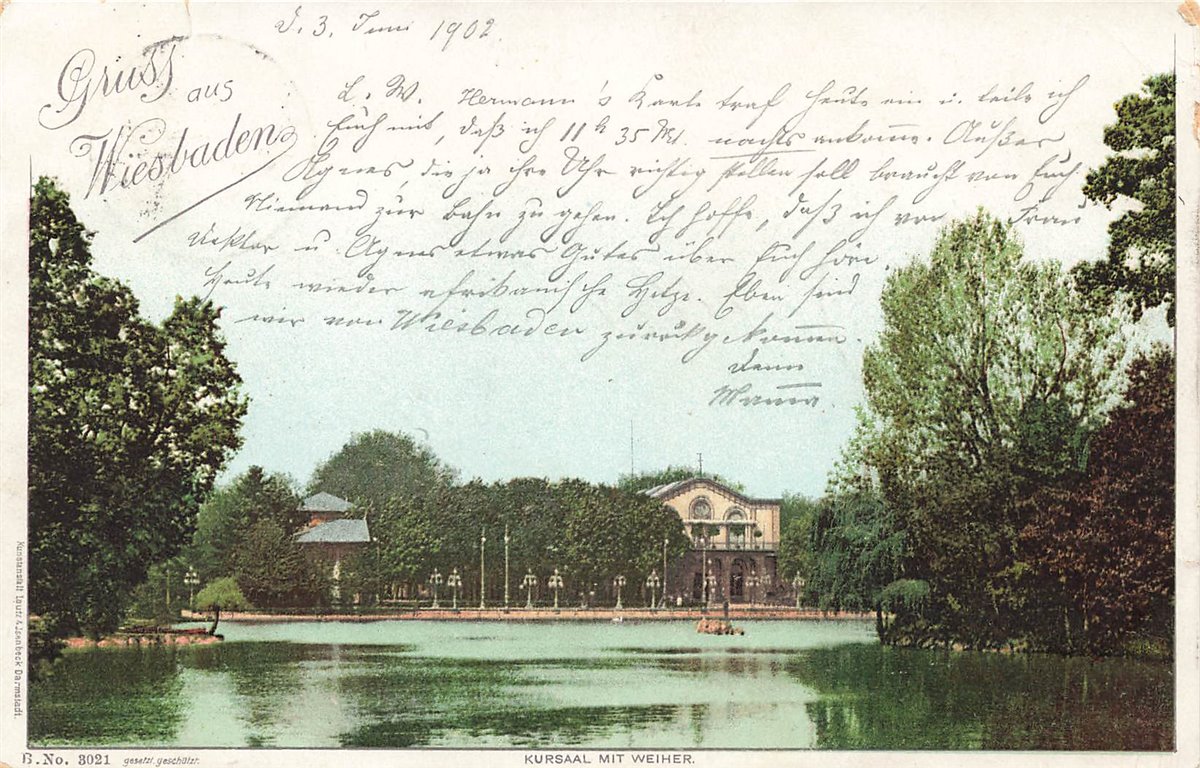 D. 3. Juni 1902.
Gruss
aus
Wiesbaden
L. W. Hermann's Karte traf heute ein u. teile ich
Euch mit, daß ich 11 h 35 M. nachts ankomme. Außer
Agnes, die ja ihre Uhr richtig stellen soll braucht von Euch
Niemand zur Bahn zu gehen. Ich hoffe, daß ich von Frau
Rektor u. Agnes etwas Gutes über Euch höre
Heute wieder afrikanische Hitze. Eben sind
wir von Wiesbaden zurückgekommen.
Deine
Mama.
Kunstanstalt Lautz & Isenbeck Darmstadt.
B. No. 3021 gesetzl. geschützt.
KURSAAL MIT WEIHER.